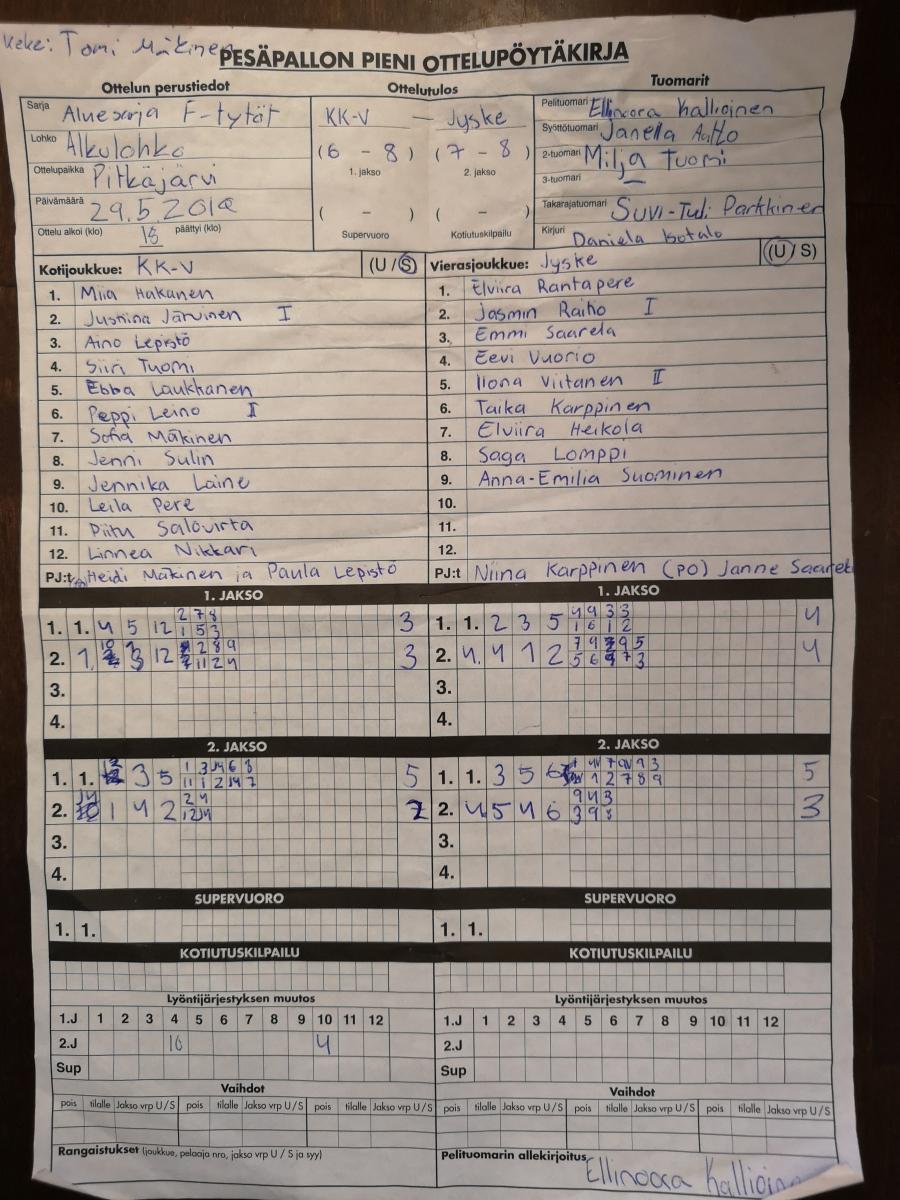 Keke: Tomi Mäkinen
PESÄPALLON PIENI OTTELUPÖYTÄKIRJA
Ottelun perustiedot
Sarja Aluesarja F-tytöt
Lohko Alkulohko
Ottelupaikka Pitkäjärvi
Päivämäärä 29.5.201
Ottelu alkoi (klo) 18 päättyi (klo)
Ottelutulos
KK-V — Jyske
(6 - 8) (7 - 8)
1. jakso 2. jakso
( - ) ( - )
Supervuoro Kotiutuskilpailu
Tuomarit
Pelituomari Ellinoora Kallioinen
Syöttötuomari Janella Aalto
2-tuomari Milja Tuomi
3-tuomari —
Takarajatuomari Suvi-Tuli Parkkinen
Kirjuri Daniela
Kotijoukkue: KK-V (U / S)
1. Miia Hakanen
2. Justiina Järvinen I
3. Aino Lepistö
4. Siiri Tuomi
5. Ebba Laukkanen
6. Peppi Leino II
7. Sofia Mäkinen
8. Jenni Sulin
9. Jennika Laine
10. Leila Pere
11. Piitu Salovirta
12. Linnea Nikkari
PJ:t Heidi Mäkinen ja Paula Lepistö
Vierasjoukkue: Jyske (U / S)
1. Elviira Rantapere
2. Jasmin Raiho I
3. Emmi Saarela
4. Eevi Vuorio
5. Ilona Viitanen II
6. Taika Karppinen
7. Elviira Heikola
8. Saga Lomppi
9. Anna-Emilia Suominen
10.
11.
12.
PJ:t Niina Karppinen (PO) Janne
1. JAKSO
2 7 8
1. 1. 4 5 12 1 5 3 3
2. 1. 3 12 3
3.
4.
1. JAKSO
4 9 3 3
1. 1. 2 3 5 1 6 1 2 4
2. 4. 4 1 2 4
3.
4.
2. JAKSO
1. 1. 3 5 5
2 4
2. 1 4 2 2
3.
4.
2. JAKSO
1. 1. 3 5 6 5
9 4 3
2. 4. 5 4 6 3 9 8 3
3.
4.
SUPERVUORO
1. 1.
SUPERVUORO
1. 1.
KOTIUTUSKILPAILU
KOTIUTUSKILPAILU
Lyöntijärjestyksen muutos
1.J 1 2 3 4 5 6 7 8 9 10 11 12
2.J 10 4
Sup
Lyöntijärjestyksen muutos
1.J 1 2 3 4 5 6 7 8 9 10 11 12
2.J
Sup
Vaihdot
pois tilalle Jakso vrp U / S pois tilalle Jakso vrp U / S pois tilalle Jakso vrp U / S
Vaihdot
pois tilalle Jakso vrp U / S pois tilalle Jakso vrp U / S pois tilalle Jakso vrp U / S
Rangaistukset (joukkue, pelaaja nro, jakso vrp U / S ja syy)
Pelituomarin allekirjoitus Ellinoora